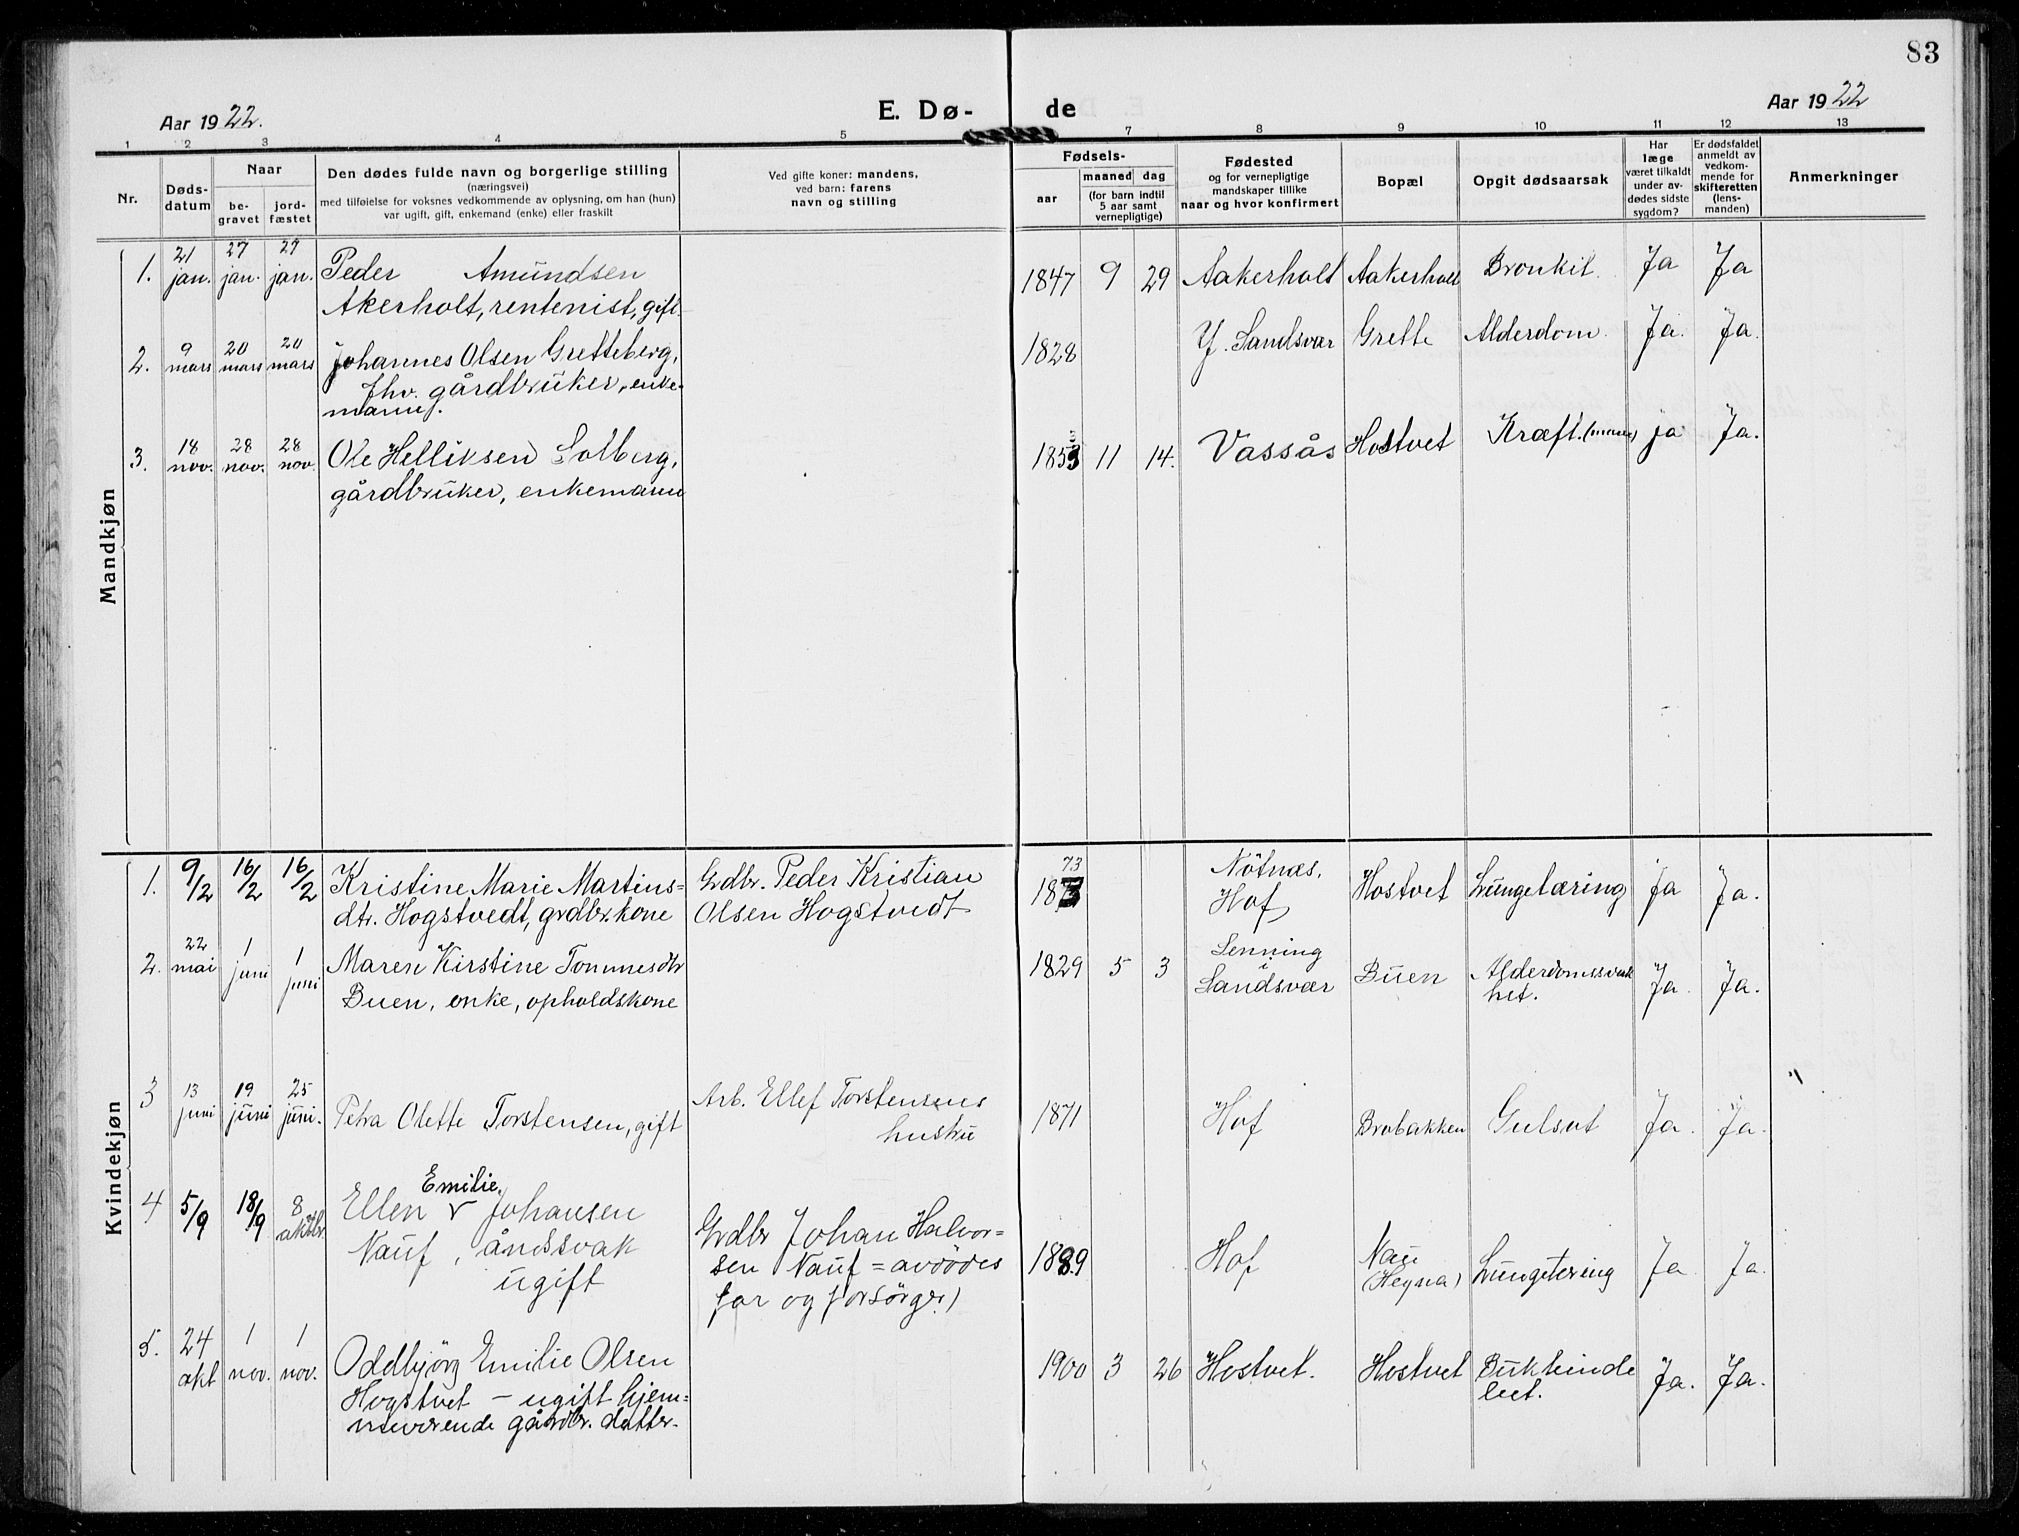 83
Aar 1922.
E. Dø-
de
Aar 1922
1 2 3 4 5 7 8 9 10 11 12 13
Nr.
Døds-
datum
Naar
be-
gravet
jord-
fæstet
Den dødes fulde navn og borgerlige stilling
(næringsvei)
med tilføielse for voksnes vedkommende av oplysning, om han (hun)
var ugift, gift, enkemand (enke) eller fraskilt
Ved gifte koner: mandens,
ved barn: farens
navn og stilling
Fødsels-
aar
maaned dag
(for barn indtil
5 aar samt
vernepligtige)
Fødested
og for vernepligtige
mandskaper tillike
naar og hvor konfirmert
Bopæl
Opgit dødsaarsak
Har
læge
været tilkaldt
under av-
dødes sidste
sygdom?
Er dødsfaldet
anmeldt av
vedkom-
mende for
skifteretten
(lens-
manden)
Anmerkninger
Mandkjøn
1. 21 jan. 27 jan. 27 jan. Peder Amundsen
Akerholt, rentenist, gift
1847 9 29 Aakerholt Aakerholt Bronkit. Ja Ja
2. 9 mars 20 mars 20 mars Johannes Olsen Gretteberg,
fhv. gårdbruker, enke-
mann.
1828 Y. Sandsvær Grette Alderdom. Ja. Ja.
3. 18 nov. 28 nov. 28 nov. Ole Helliksen Solberg,
gårdbruker, enkemann
1853 11 14. Vassås Hostvet Kræft. ja Ja.
Kvindekjøn
1. 9/2 16/2 16/2 Kristine Marie Martins=
dtr. Hogstvedt, grdbr.kone
Grdbr. Peder Kristian
Olsen Hogstvedt
73
1873 Nötnæs,
Hof Hostvet Lungetæring ja Ja.
2. 22 mai 1 juni 1 juni Maren Kirstine Tommesdtr
Buen, enke, opholdskone
1829 5 3 Senning
i
Sandsvær Buen Alderdomssvak
het. Ja. Ja.
3 13 juni 19 juni 25 juni. Petra Olette Torstensen, gift
Arb. Ellef Torstensens
hustru
1871 Hof Brobakken Gulsot Ja. Ja.
4 5/9 18/9 8 oktbr. Emilie.
Ellen v Johansen
Nauf, åndssvak
ugift
Grdbr Johan Halvor=
sen Nauf = avdödes
far og forsörger)
1889 Hof Nau
(Heyna) Lungetering Ja Ja.
5. 24 okt 1 nov. 1 nov. Oddbjörg Emilie Olsen
Hogstvet – ugift hjem=
meværende gårdbr. datter.
1900 3 26 Hostvet. Hostvet Bukhinde
bet. Ja. Ja.